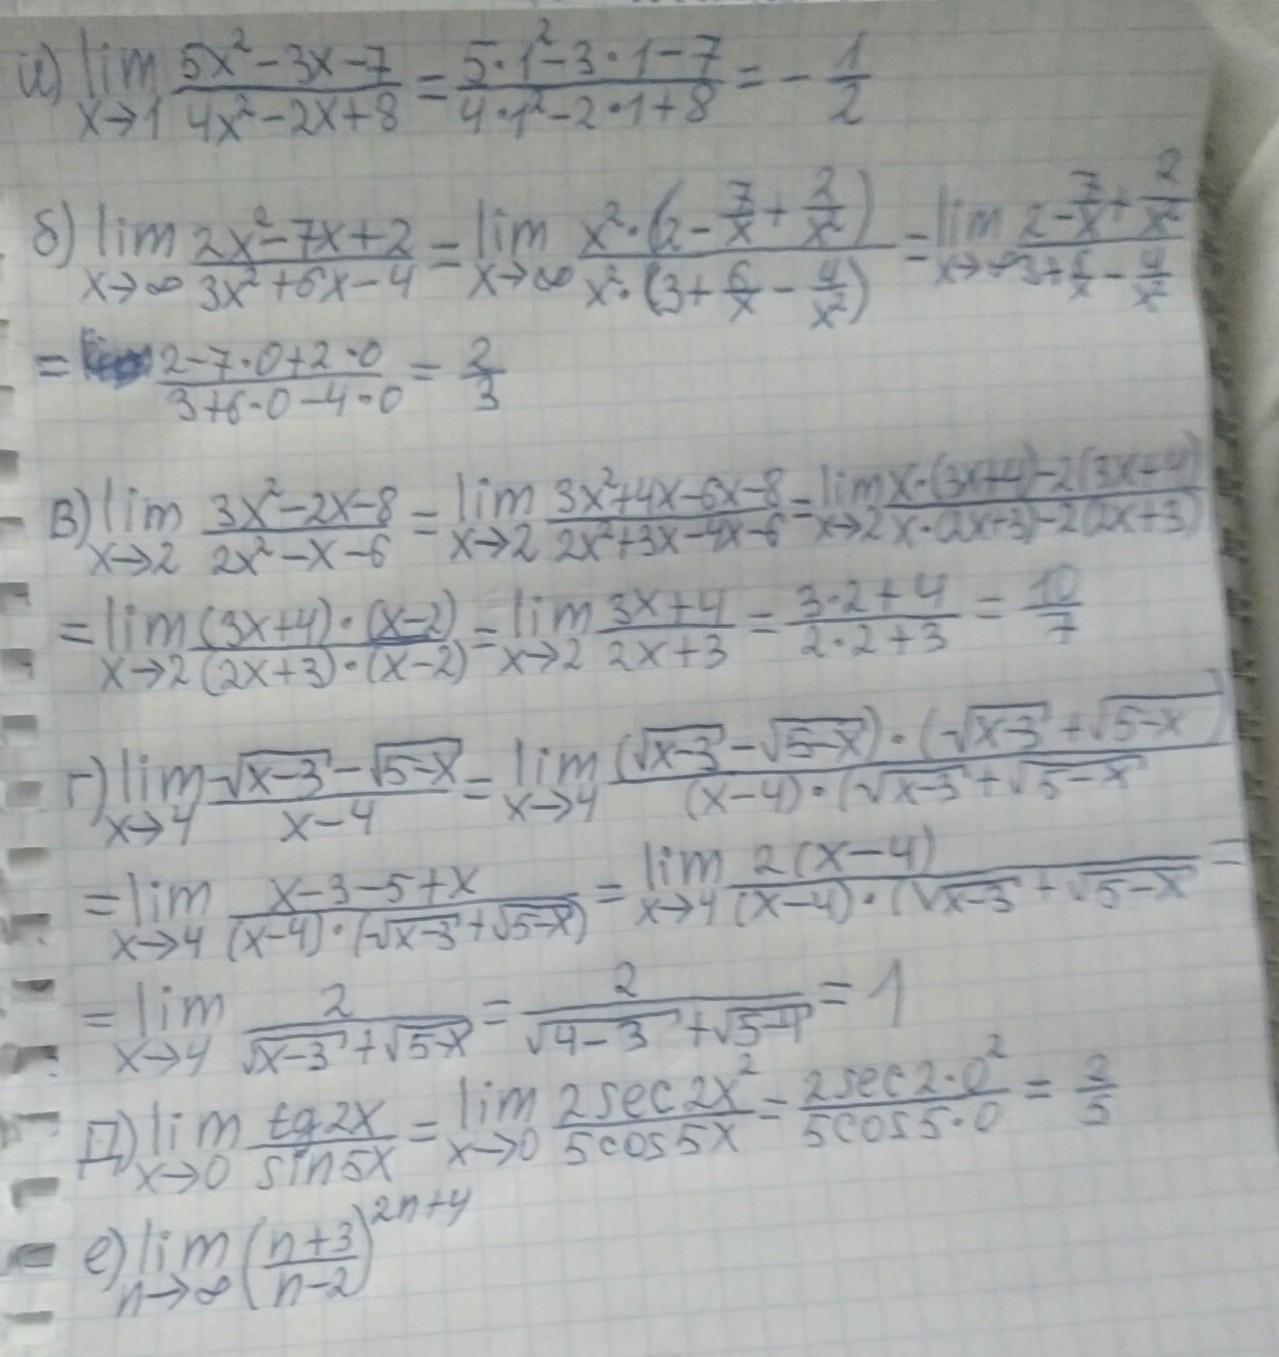 а) lim x→1 (5x²-3x-7)/(4x²-2x+8) = (5·1²-3·1-7)/(4·1²-2·1+8) = -1/2
б) lim x→∞ (2x²-7x+2)/(3x²+6x-4) = lim x→∞ (x²·(2-7/x+2/x²))/(x²·(3+6/x-4/x²)) = lim x→∞ (2-7/x+2/x²)/(3+6/x-4/x²)
= (2-7·0+2·0)/(3+6·0-4·0) = 2/3
в) lim x→2 (3x²-2x-8)/(2x²-x-6) = lim x→2 (3x²+4x-6x-8)/(2x²+3x-4x-6) = lim x→2 (x·(3x+4)-2(3x+4))/(x·(2x+3)-2(2x+3))
= lim x→2 ((3x+4)·(x-2))/((2x+3)·(x-2)) = lim x→2 (3x+4)/(2x+3) = (3·2+4)/(2·2+3) = 10/7
г) lim x→4 (√(x-3)-√(5-x))/(x-4) = lim x→4 ((√(x-3)-√(5-x))·(√(x-3)+√(5-x)))/((x-4)·(√(x-3)+√(5-x)))
= lim x→4 (x-3-5+x)/((x-4)·(√(x-3)+√(5-x))) = lim x→4 (2(x-4))/((x-4)·(√(x-3)+√(5-x))) =
= lim x→4 2/(√(x-3)+√(5-x)) = 2/(√(4-3)+√(5-4)) = 1
Д) lim x→0 (tg2x)/(sin5x) = lim x→0 (2sec2x²)/(5cos5x) = (2sec2·0²)/(5cos5·0) = 2/5
е) lim n→∞ ((n+3)/(n-2))^(2n+4)